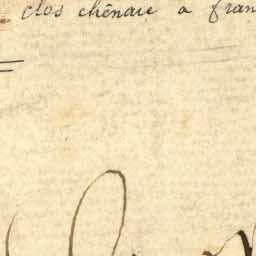 clos chênaie a fran